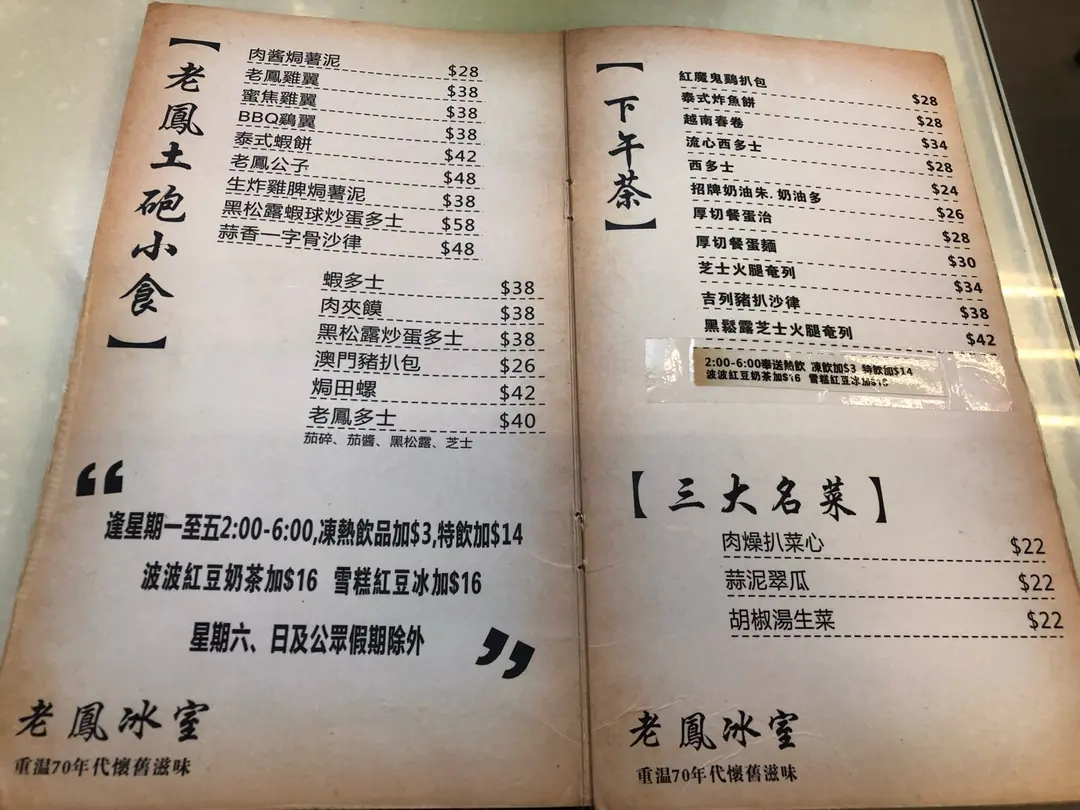 【老鳳土砲小食】
肉酱焗薯泥 $28
老鳳雞翼 $38
蜜焦雞翼 $38
BBQ鷄翼 $38
泰式蝦餅 $42
老鳳公子 $48
生炸雞脾焗薯泥 $38
黑松露蝦球炒蛋多士 $58
蒜香一字骨沙律 $48
蝦多士 $38
肉夾饃 $38
黑松露炒蛋多士 $38
澳門豬扒包 $26
焗田螺 $42
老鳳多士 $40
茄碎、茄醬、黑松露、芝士
“
逢星期一至五2:00-6:00,凍熱飲品加$3,特飲加$14
波波紅豆奶茶加$16 雪糕紅豆冰加$16
星期六、日及公眾假期除外
”
老鳳冰室
重温70年代懷舊滋味
【下午茶】
紅魔鬼鷄扒包 $28
泰式炸魚餅 $28
越南春卷 $34
流心西多士 $28
西多士 $24
招牌奶油朱.奶油多 $26
厚切餐蛋治 $28
厚切餐蛋麵 $30
芝士火腿奄列 $34
吉列豬扒沙律 $38
黑鬆露芝士火腿奄列 $42
2:00-6:00奉送熱飲 凍飲加$3 特飲加$14
波波紅豆奶茶加$16 雪糕紅豆冰加$16
【三大名菜】
肉燥扒菜心 $22
蒜泥翠瓜 $22
胡椒湯生菜 $22
老鳳冰室
重温70年代懷舊滋味